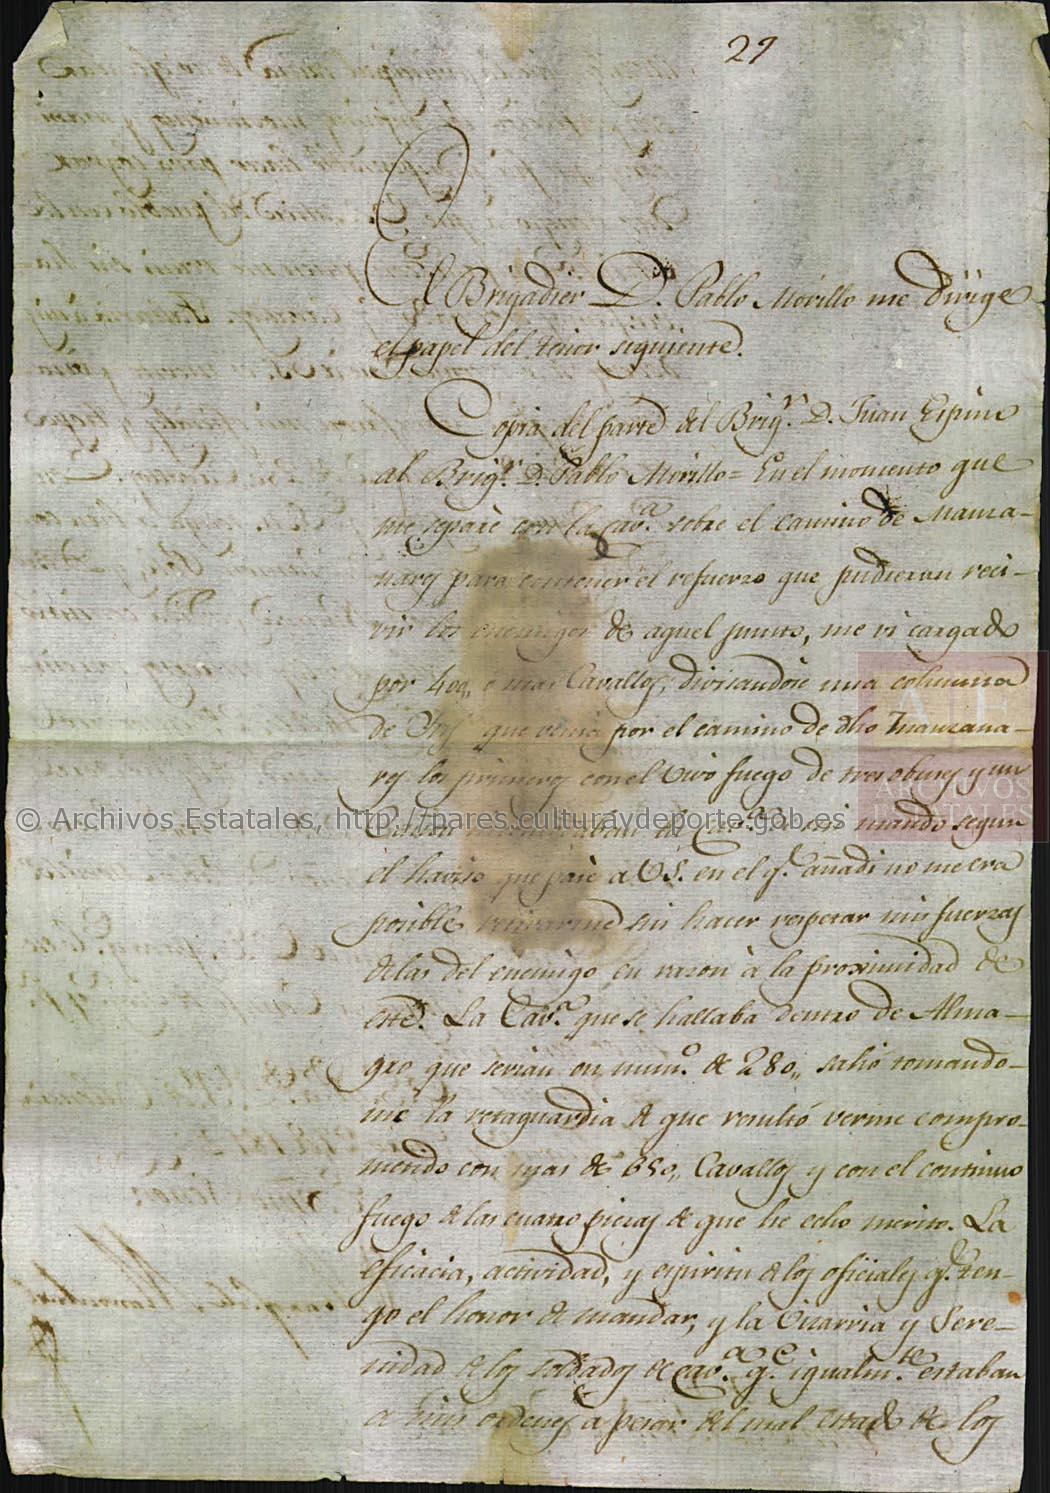 29
El Brigadier Dn. Pablo Morillo me dirige
el papel del tenor siguiente.
Copia del parte del Brigr. D. Juan Espino
al Brigr. D. Pablo Morillo = En el momento que
me separé con la Cava. sobre el camino de Manza-
nares para contener el refuerzo que pudieran reci-
vir los enemigos de aquel punto, me vi cargado
por 400,, o mas Cavallos, divisandose una columna
de que venia por el camino de dho Manzana-
res los primeros con el vivo fuego de tres obuses y un
de Cava. de mi mando segun
el haviso que pasé a VS. en el qe. añadi no me era
posible retirarme sin hacer respetar mis fuerzas
de las del enemigo en razon à la proximidad de
este. La Cava. que se hallaba dentro de Alma-
gro que serian en numo. de 280,, salió tomando-
me la retaguardia de que resultó verme compro-
metido con mas de 650,, Cavallos y con el continuo
fuego de las cuatro piezas de que he echo merito. La
eficacia, actividad, y espiritu de los oficiales qe. ten-
go el honor de mandar, y la vizarria y Sere-
nidad de los soldados de Cava. qe. igualmte. estaban
a mis ordenes a pesar del mal estado de los
© Archivos Estatales, http://pares.culturaydeporte.gob.es
ARCHIVOS
ESTATALES